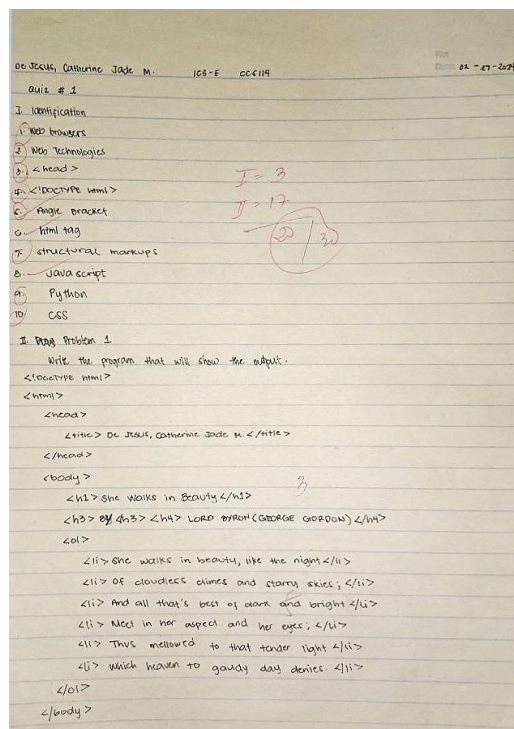 De Jesus, Catherine Jade M. ICS-E CCS114 02-27-2024
Quiz # 1
I. Identification
1. Web browsers
2. Web Technologies
3. <head>
4. <!DOCTYPE html>
5. Angle Bracket
6. html tag
7. structural markups
8. Java script
9. Python
10. CSS
I = 3
II = 17
20 / 30
II. Problem 1
Write the program that will show the output.
<!DOCTYPE html>
<html>
<head>
<title> De Jesus, Catherine Jade M. </title>
</head>
<body>
3
<h1> She Walks in Beauty </h1>
<h3> BY <h3> <h4> LORD BYRON (GEORGE GORDON) </h4>
<ol>
<li> She walks in beauty, like the night </li>
<li> Of cloudless climes and starry skies; </li>
<li> And all that's best of dark and bright </li>
<li> Meet in her aspect and her eyes; </li>
<li> Thus mellowed to that tender light </li>
<li> which heaven to gaudy day denies. </li>
</ol>
</body>